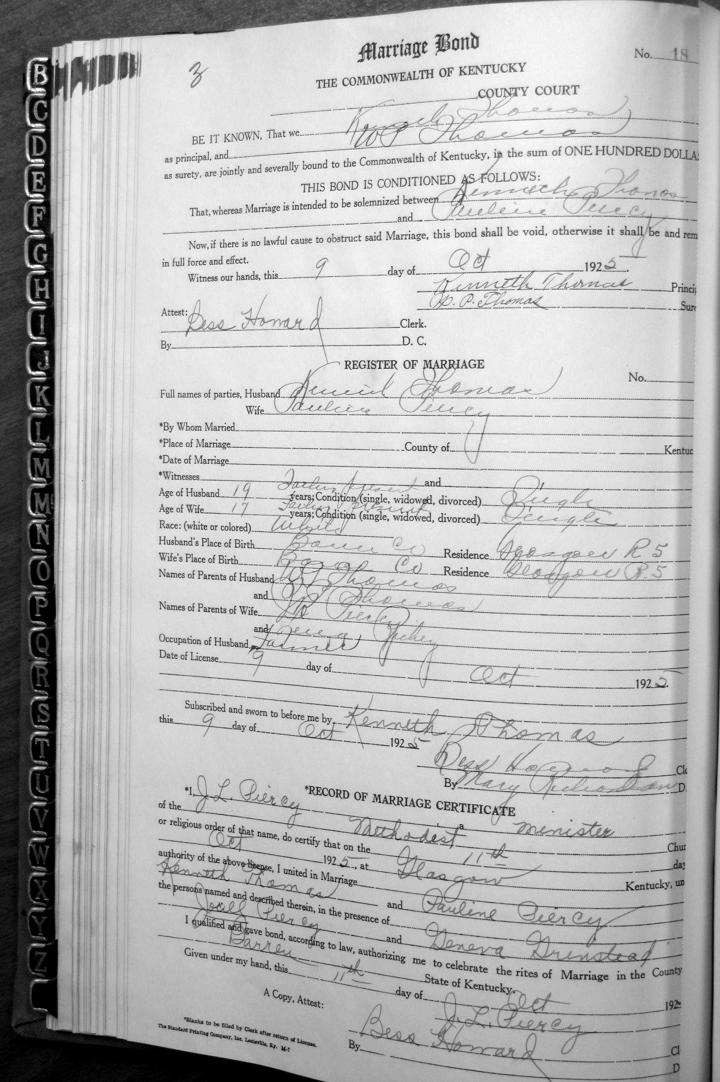 3
Marriage Bond
No. 18
THE COMMONWEALTH OF KENTUCKY
COUNTY COURT
BE IT KNOWN, That we Kenneth Thomas
as principal, and W P Thomas
as surety, are jointly and severally bound to the Commonwealth of Kentucky, in the sum of ONE HUNDRED DOLLA
THIS BOND IS CONDITIONED AS FOLLOWS:
That, whereas Marriage is intended to be solemnized between Kenneth Thomas
and Pauline Piercy
Now, if there is no lawful cause to obstruct said Marriage, this bond shall be void, otherwise it shall be and rem
in full force and effect.
Witness our hands, this 9 day of Oct 1925.
Kenneth Thomas Princi
W. P. Thomas Sure
Attest:
Bess Howard Clerk.
By D. C.
REGISTER OF MARRIAGE
No.
Full names of parties, Husband Kenneth Thomas
Wife Pauline Piercy
*By Whom Married
*Place of Marriage County of Kentuc
*Date of Marriage
*Witnesses and
Age of Husband 19 Father present years; Condition (single, widowed, divorced) Single
Age of Wife 17 Father present years; Condition (single, widowed, divorced) Single
Race: (white or colored) White
Husband's Place of Birth Barren Co Residence Glasgow R 5
Wife's Place of Birth Co Residence Glasgow R. 5
Names of Parents of Husband Thomas
and Thomas
Names of Parents of Wife Piercy
and Richey
Occupation of Husband Farmer
Date of License 9 day of Oct 1925.
Subscribed and sworn to before me by Kenneth Thomas
this 9 day of Oct 1925
Bess Howard Cl
By Mary Richardson D.
*RECORD OF MARRIAGE CERTIFICATE
*I, J. L. Piercy a minister
of the Methodist Chur
or religious order of that name, do certify that on the 11th day
Oct 1925, at Glasgow Kentucky, un
authority of the above license, I united in Marriage
Kenneth Thomas and Pauline Piercy
the persons named and described therein, in the presence of
Joell Piercy and Geneva Grinstead
I qualified and gave bond, according to law, authorizing me to celebrate the rites of Marriage in the County
Barren State of Kentucky.
Given under my hand, this 11th day of Oct 192
J. L. Piercy
A Copy, Attest:
Bess Howard Cl
By D
*Blanks to be filled by Clerk after return of License.
The Standard Printing Company, Inc. Louisville, Ky. M-7
B
C
D
E
F
G
H
I
J
K
L
M
Mc
N
O
P
Q
R
S
T
U
V
W
X
Y
Z